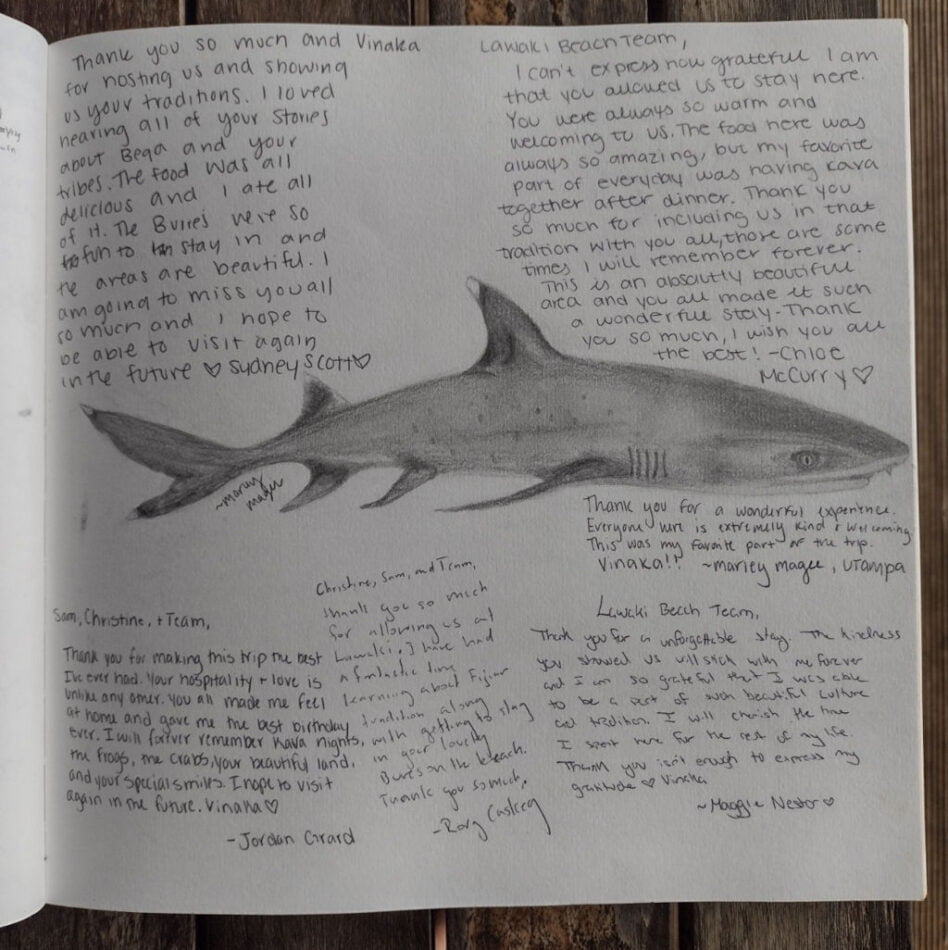 Thank you so much and Vinaka
for hosting us and showing
us your traditions. I loved
hearing all of your stories
about Beqa and your
tribes. The food was all
delicious and I ate all
of it. The Bure's were so
fun to stay in and
the areas are beautiful. I
am going to miss you all
so much and I hope to
be able to visit again
in the future ♡ Sydney Scott♡
Lawaki Beach Team,
I can't express how grateful I am
that you allowed us to stay here.
You were always so warm and
welcoming to us. The food here was
always so amazing, but my favorite
part of everyday was having Kava
together after dinner. Thank you
so much for including us in that
tradition with you all, those are some
times I will remember forever.
This is an absolutly beautiful
area and you all made it such
a wonderful stay. Thank
you so much, I wish you all
the best! -Chloe
McCurry♡
~marley
magee
Thank you for a wonderful experience.
Everyone here is extremely kind & welcoming.
This was my favorite part of the trip.
Vinaka!! ~marley magee, UTampa
Sam, Christine, + Team,
Thank you for making this trip the best
I've ever had. Your hospitality + love is
unlike any other. You all made me feel
at home and gave me the best birthday
ever. I will forever remember Kava nights,
the frogs, the crabs, your beautiful land,
and your special smiles. I hope to visit
again in the future. Vinaka♡
-Jordan Girard
Christine, Sam, and Team,
Thank you so much
for allowing us at
Lawaki. I have had
a fantastic time
learning about Fijian
tradition along
with getting to stay
in your lovely
Bures on the beach.
Thank you so much,
-Rory
Lawaki Beach Team,
Thank you for a unforgettable stay. The kindness
you showed us will stick with me forever
and I am so grateful that I was able
to be a part of such beautiful culture
and tradition. I will cherish the time
I spent here for the rest of my life.
Thank you isn't enough to express my
gratitude ♡ Vinaka
~Maggie Nestor♡